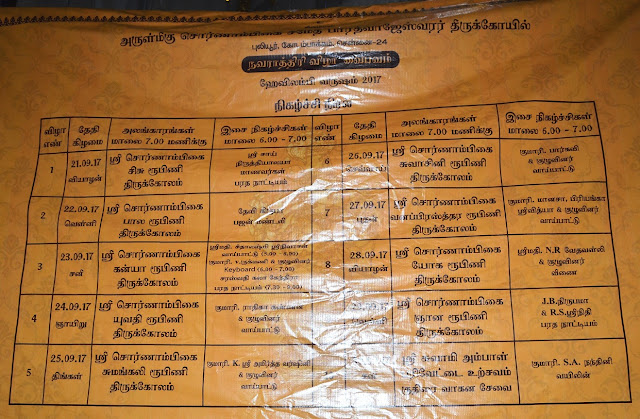 அருள்மிகு சொர்ணாம்பிகை சமேத பாரத்வாஜேஸ்வரர் திருக்கோயில்
புலியூர், கோடம்பாக்கம், சென்னை-24
நவராத்திரி விழா வைபவம்
ஹேவிலம்பி வருஷம் 2017
நிகழ்ச்சி நிரல்
விழா எண்
தேதி கிழமை
அலங்காரங்கள் மாலை 7.00 மணிக்கு
இசை நிகழ்ச்சிகள் மாலை 6.00 - 7.00
விழா எண்
தேதி கிழமை
அலங்காரங்கள் மாலை 7.00 மணிக்கு
இசை நிகழ்ச்சிகள் மாலை 6.00 - 7.00
1
21.09.17
வியாழன்
ஸ்ரீ சொர்ணாம்பிகை
சிசு ரூபிணி
திருக்கோலம்
ஸ்ரீ சாய்
நிருத்தியாலயா
மாணவர்கள்
பரத நாட்டியம்
6
26.09.17
ஸ்ரீ சொர்ணாம்பிகை
சுவாசினி ரூபிணி
திருக்கோலம்
குமாரி. பார்கவி
& குழுவினர்
வாய்ப்பாட்டு
2
22.09.17
வெள்ளி
ஸ்ரீ சொர்ணாம்பிகை
பால ரூபிணி
திருக்கோலம்
தேவி
பஜன் மண்டலி
7
27.09.17
புதன்
ஸ்ரீ சொர்ணாம்பிகை
வனப்பிரஸ்தா ரூபிணி
திருக்கோலம்
குமாரி. மானசா, பிரியங்கா
ஸ்ரீவித்யா & குழுவினர்
வாய்ப்பாட்டு
3
23.09.17
சனி
ஸ்ரீ சொர்ணாம்பிகை
கன்யா ரூபிணி
திருக்கோலம்
வாய்ப்பாட்டு
& குழுவினர்
Keyboard (6.00 - 7.00)
பரத நாட்டியம் (7.30 -
8
28.09.17
வியாழன்
ஸ்ரீ சொர்ணாம்பிகை
யோக ரூபிணி
திருக்கோலம்
ஸ்ரீமதி. N.R தேவவள்ளி
& குழுவினர்
வீணை
4
24.09.17
ஞாயிறு
ஸ்ரீ சொர்ணாம்பிகை
யுவதி ரூபிணி
திருக்கோலம்
குமாரி. ராதிகா
& குழுவினர்
வாய்ப்பாட்டு
ஸ்ரீ சொர்ணாம்பிகை
ஞான ரூபிணி
திருக்கோலம்
J.B.திருபமா
& R.S.ஸ்ரீநிதி
பரத நாட்டியம்
5
25.09.17
திங்கள்
ஸ்ரீ சொர்ணாம்பிகை
சுமங்கலி ரூபிணி
திருக்கோலம்
குமாரி. K. ஸ்ரீ அமிர்த வர்ஷினி
& குழுவினர்
வாய்ப்பாட்டு
ஸ்ரீ சுவாமி அம்பாள்
உற்சவம்
குதிரை வாகன சேவை
குமாரி. S.A. நந்தினி
வயிலின்